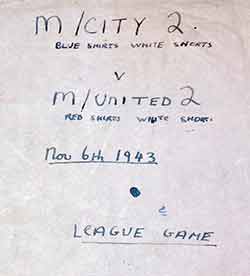 M/CITY 2.
BLUE SHIRTS WHITE SHORTS
V
M/UNITED 2
RED SHIRTS WHITE SHORTS
Nov 6th 1943
e
LEAGUE GAME